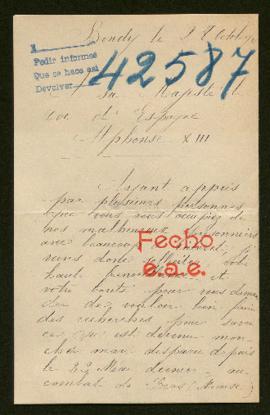 Bondy le 28 Octobre
Pedir informes
Que se hace así
Devolver
42587
Sa Majesté le
Roi d'Espagne
Alphonse XIII
Ayant appris
par plusieurs personnes
que vous vous occupiez de
nos malheureux prisonniers
avec beaucoup
viens donc solliciter votre
haute et
votre bonté pour vous deman
der de vouloir bien faire
des recherches pour savoir
ce qu'est devenu mon
cher mari disparu depuis
le 22 Mai dernier au
combat de (Meuse)
Fecho
e.a.e.